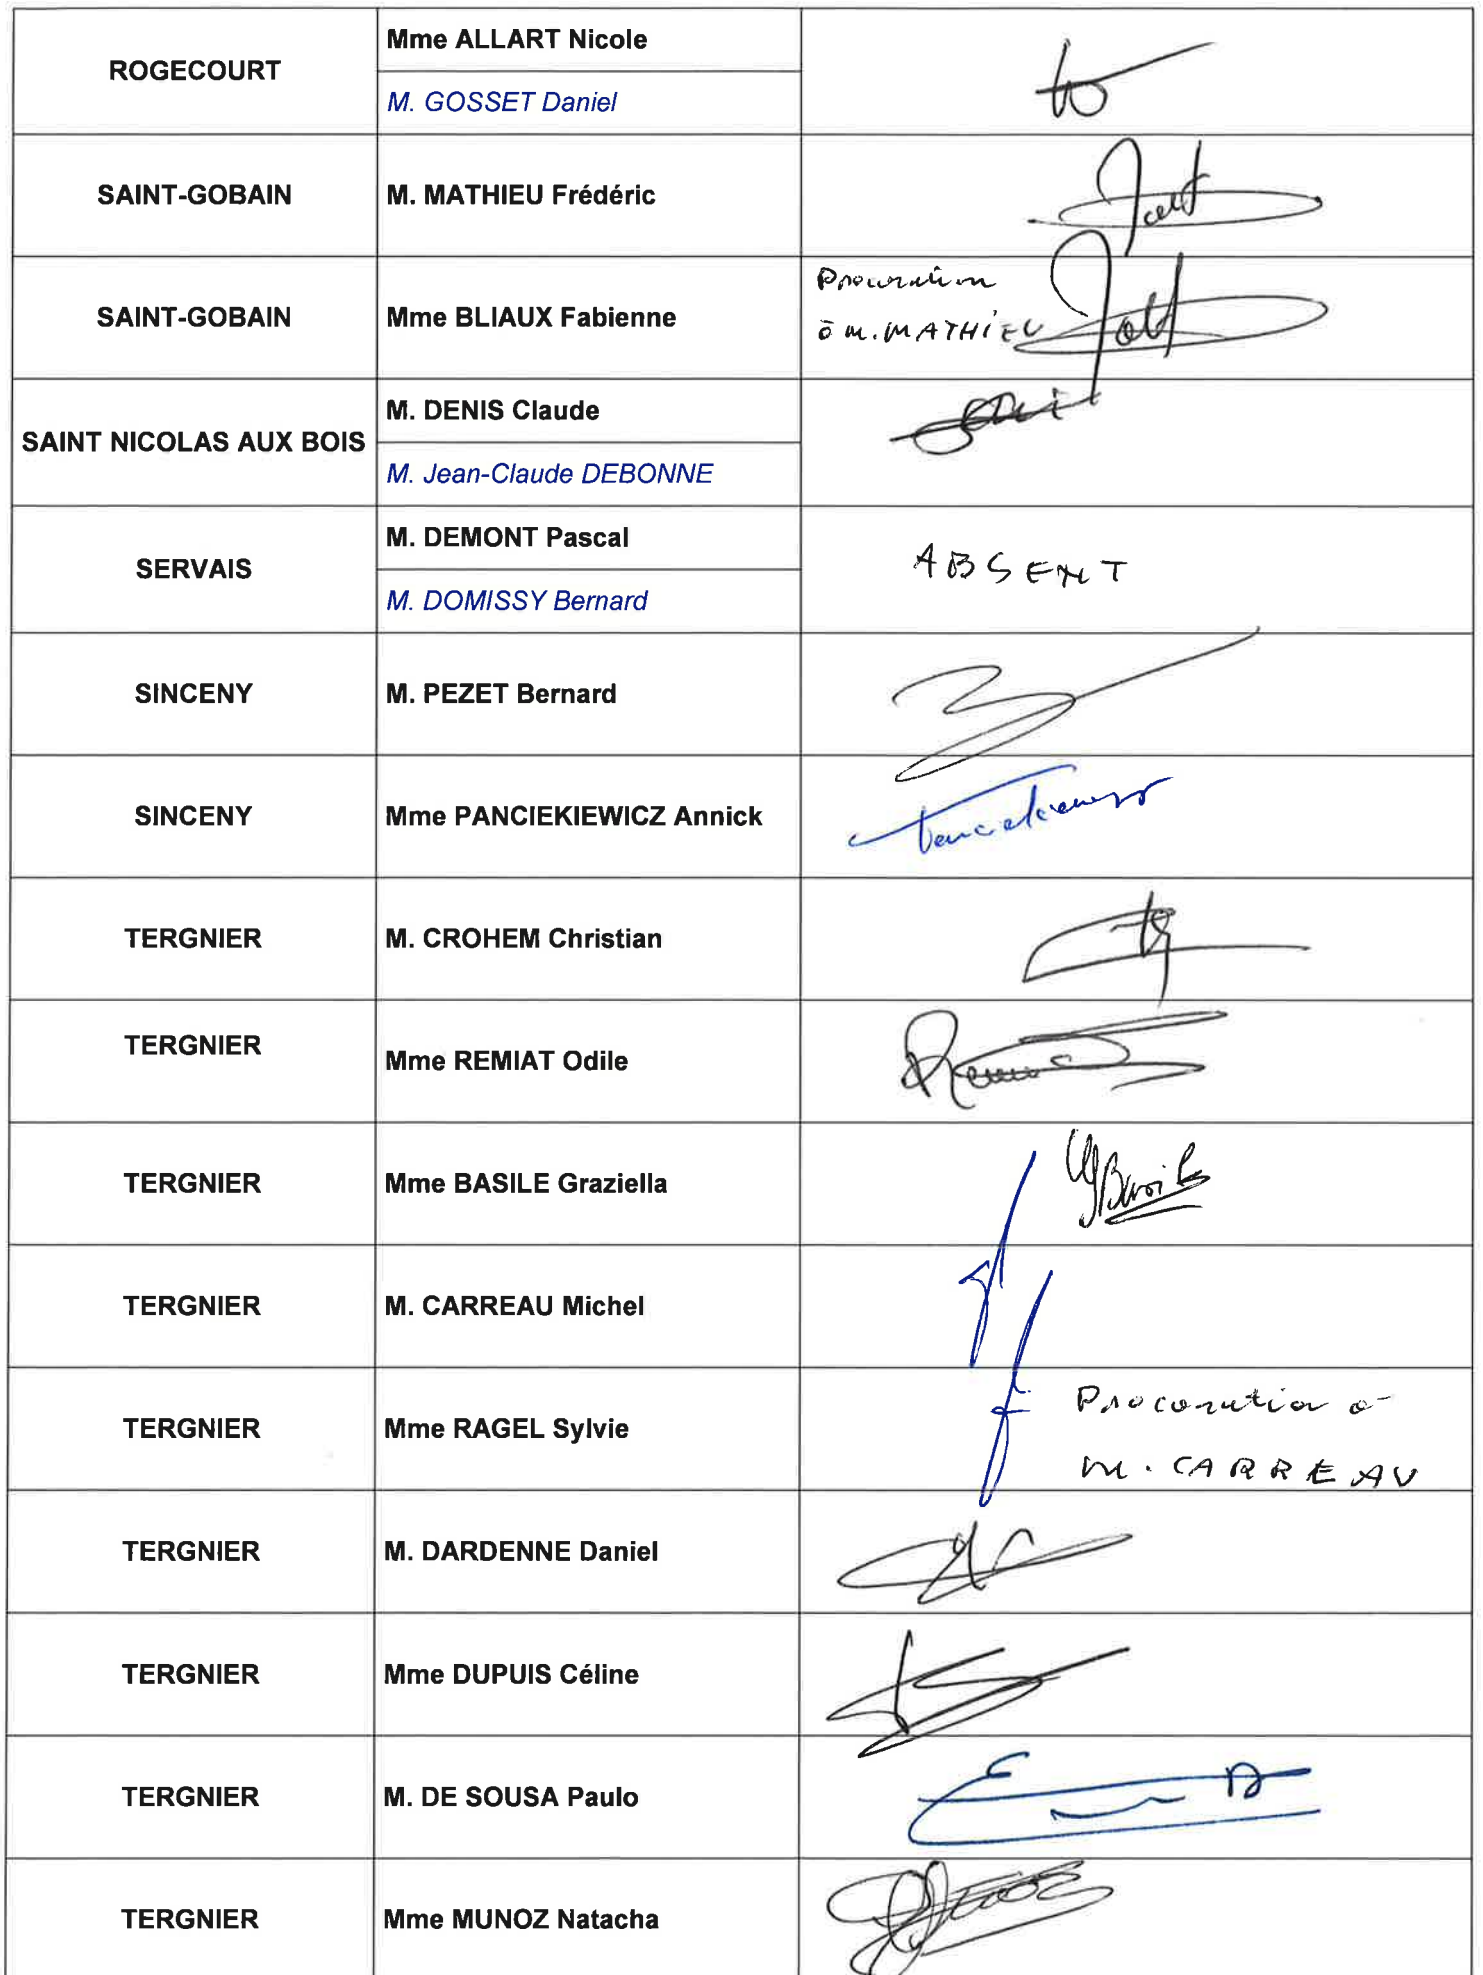 ROGECOURT
Mme ALLART Nicole
M. GOSSET Daniel
SAINT-GOBAIN
M. MATHIEU Frédéric
SAINT-GOBAIN
Mme BLIAUX Fabienne
Procuration
à M. MATHIEU
SAINT NICOLAS AUX BOIS
M. DENIS Claude
M. Jean-Claude DEBONNE
SERVAIS
M. DEMONT Pascal
M. DOMISSY Bernard
ABSENT
SINCENY
M. PEZET Bernard
SINCENY
Mme PANCIEKIEWICZ Annick
TERGNIER
M. CROHEM Christian
TERGNIER
Mme REMIAT Odile
TERGNIER
Mme BASILE Graziella
TERGNIER
M. CARREAU Michel
TERGNIER
Mme RAGEL Sylvie
Procuration à
M. CARREAU
TERGNIER
M. DARDENNE Daniel
TERGNIER
Mme DUPUIS Céline
TERGNIER
M. DE SOUSA Paulo
TERGNIER
Mme MUNOZ Natacha